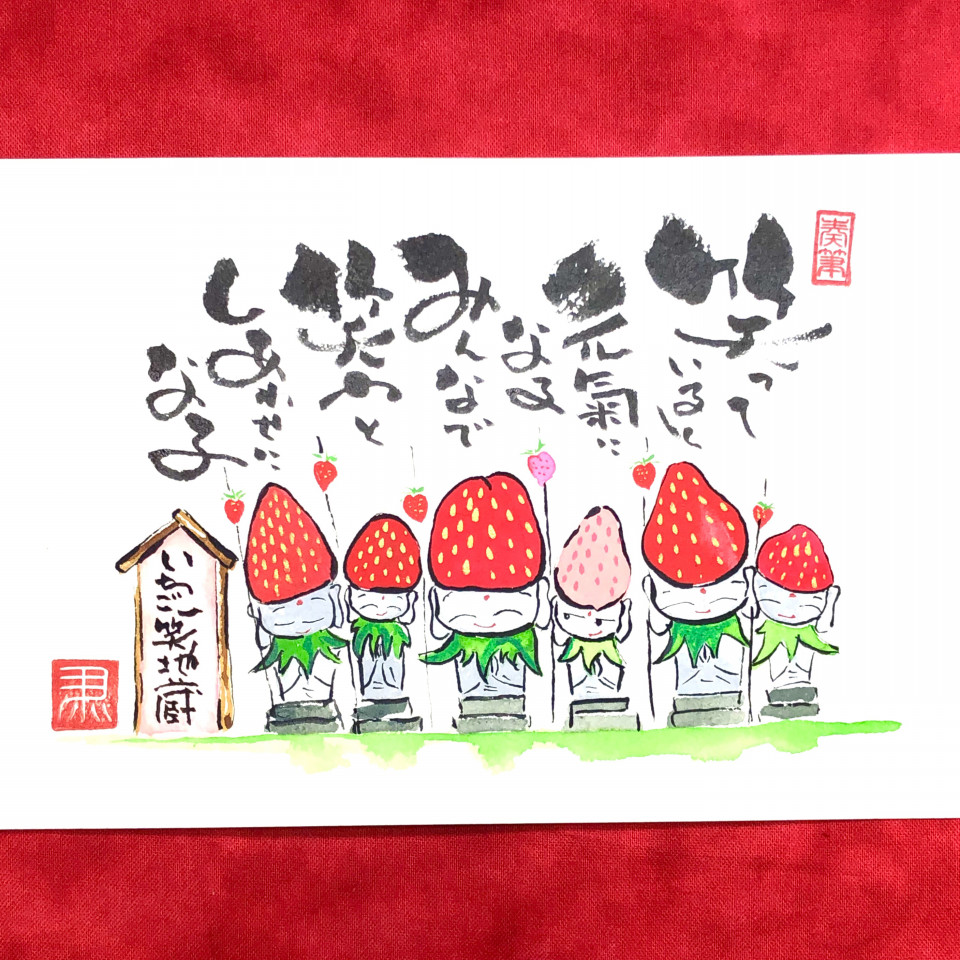 奏筆
笑って
いると
元氣に
なる
みんなで
笑つと
しあわせに
なる
いちご笑地蔵